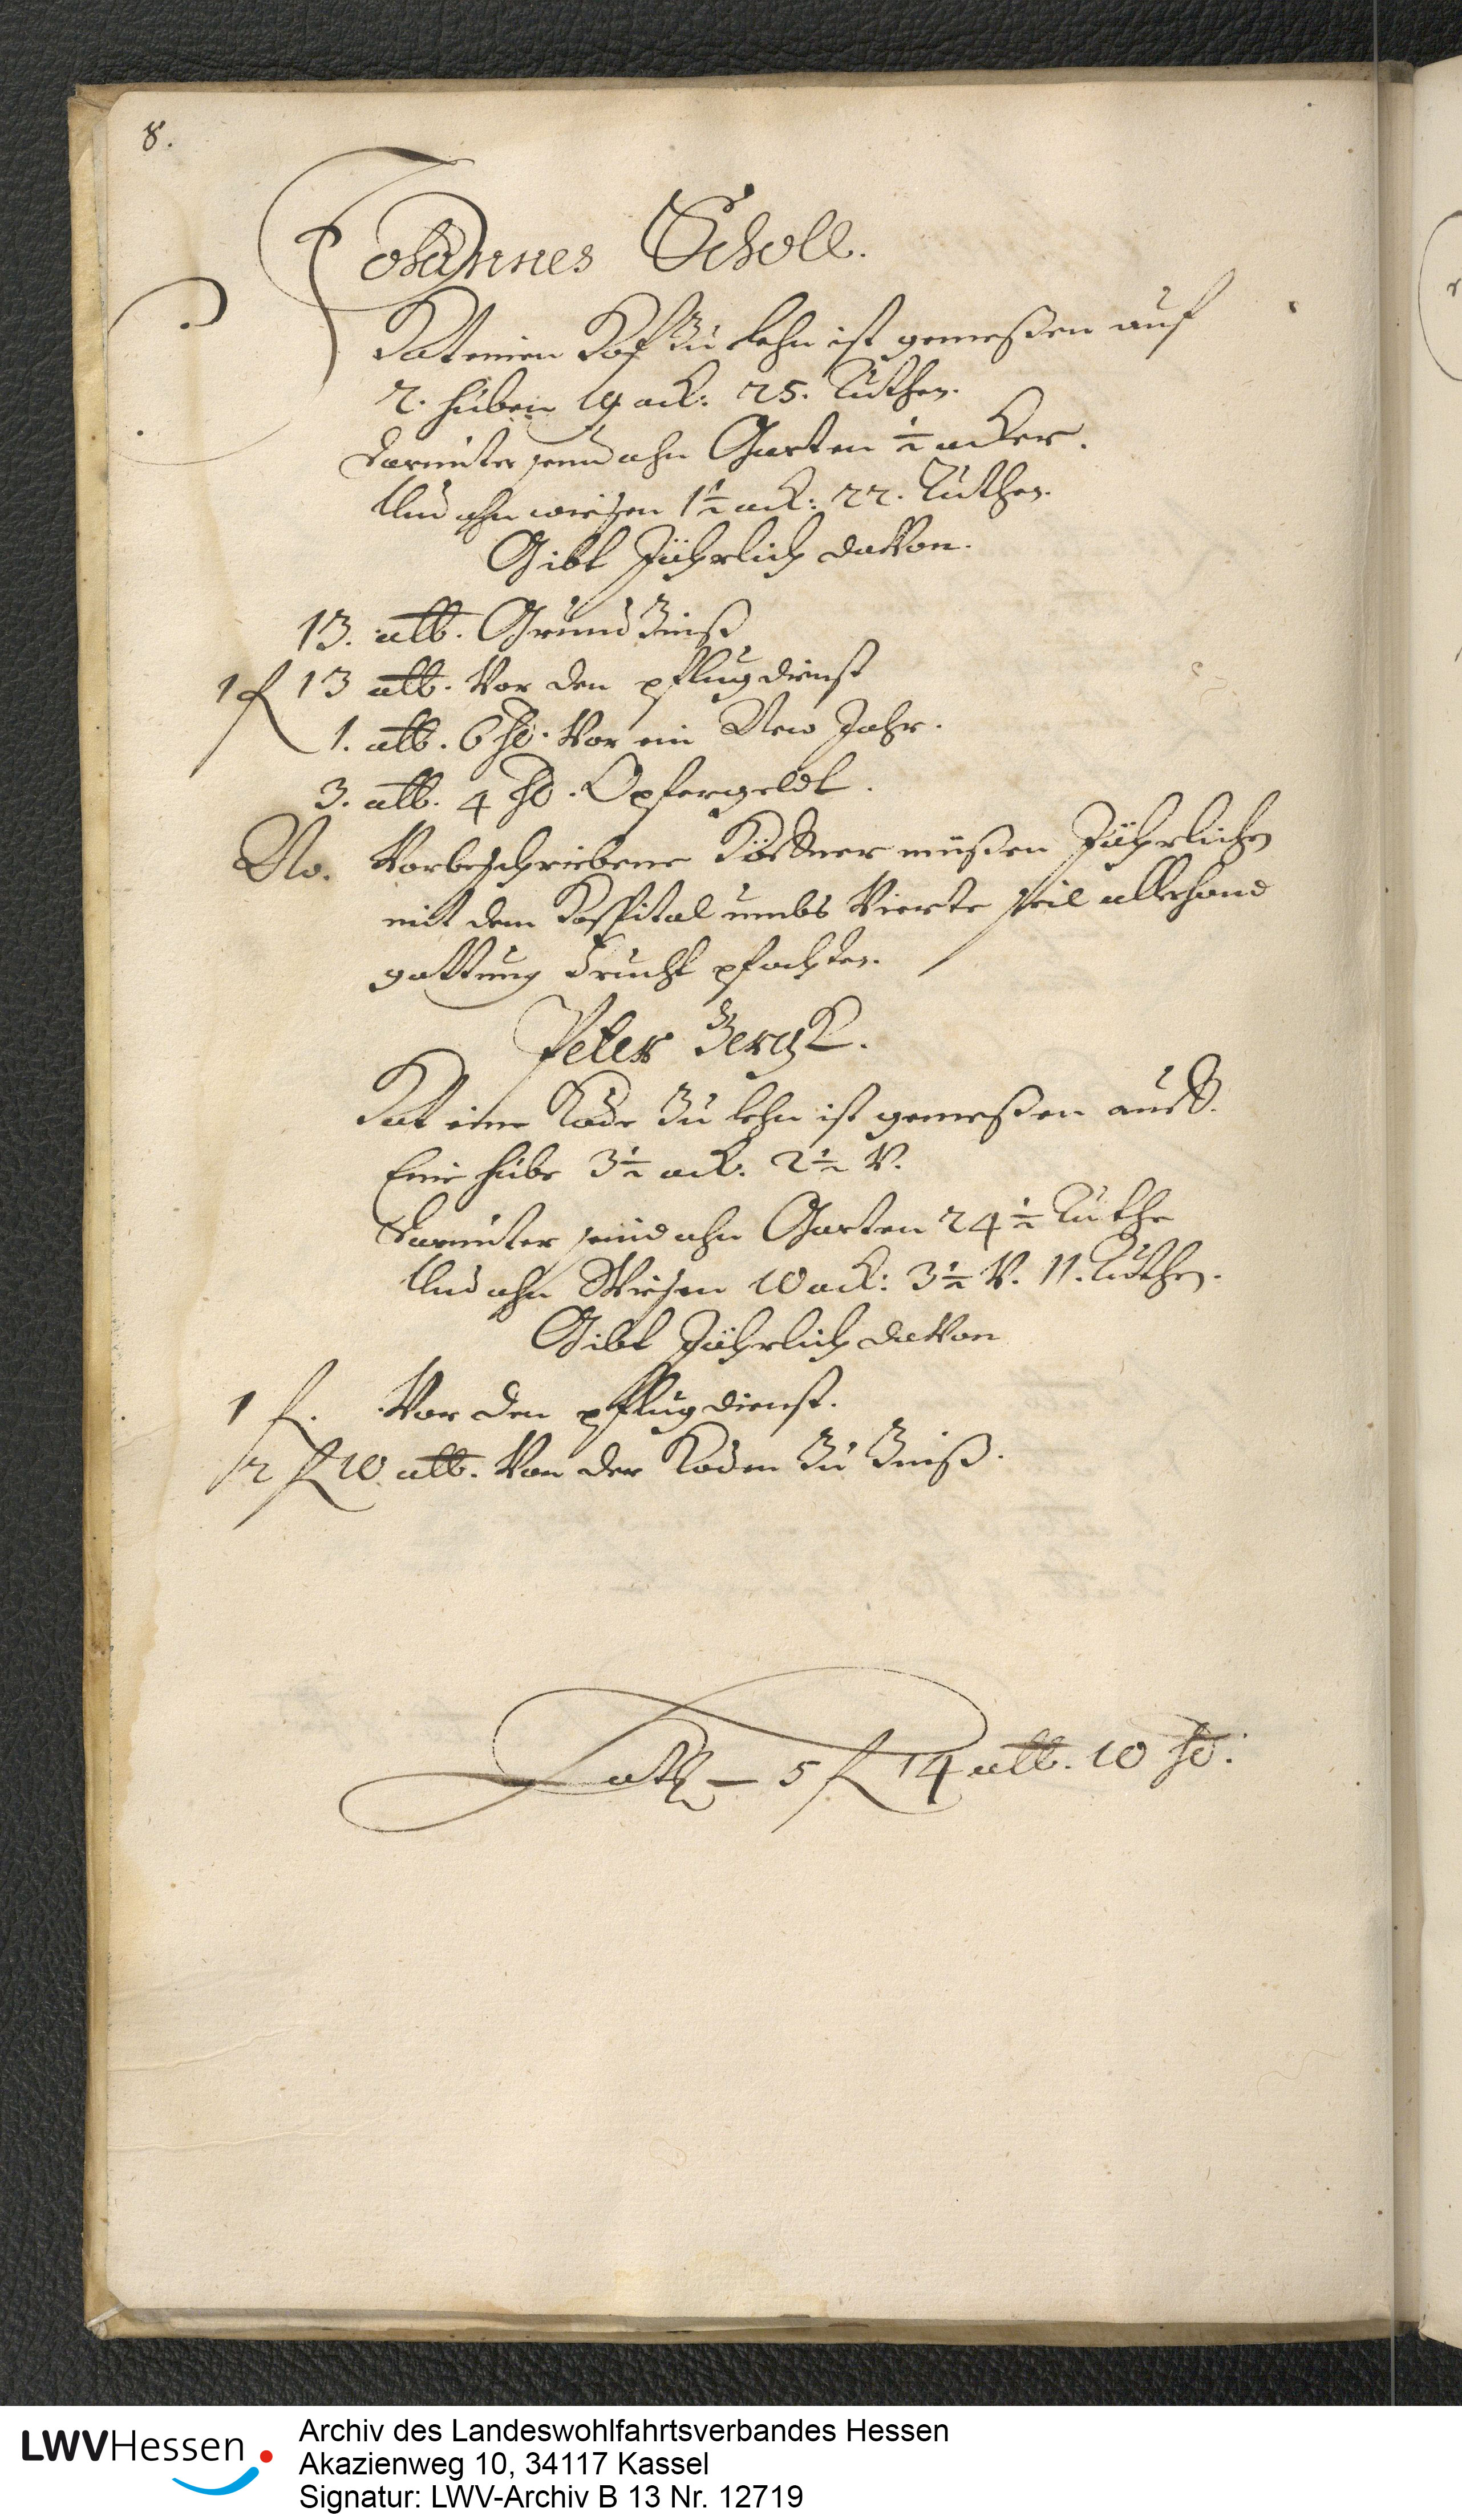 8.
Johannes Scholl.
Hat einen Hof Zu Lehn ist gemeßen auf
2. huben 19 ack: 25. Ruthen.
darunter seind ahn Garten ½ acker.
Und ahn wiesen 1½ ack: 22. Ruthen.
Gibt Jährlich davon.
13. alb. Grund Zinß
1 fl 13 alb. Vor den pflugdienst
1. alb. 6 hlr. Vor ein New Jahr.
3. alb. 4 hlr. Opfergeldt.
No. Vorbeschriebene Höffner müßen Jährlichen
mit dem Hospital umbs Vierte theil allerhand
gattung frucht pfachten.
Peter Bergk.
Hat eine Köde Zu Lehn ist gemeßen auff.
Eine hube 3½ ack. 2½ V.
darunter seind ahn Garten 24½ Ruthe
Und ahn Wiesen 10 ack: 3½ V. 11. Ruthen.
Gibt Jährlich davon
1 fl. Vor den pflugdienst.
2 fl 10 alb. Von der Köden Zu Zinß.
Lath — 5 fl 14 alb. 10 hlr.
LWVHessen
Archiv des Landeswohlfahrtsverbandes Hessen
Akazienweg 10, 34117 Kassel
Signatur: LWV-Archiv B 13 Nr. 12719